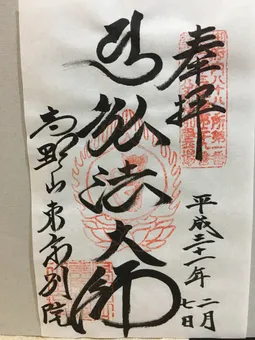 奉拝
平成三十一年
二月
七日
弘法大師
高野山東京別院